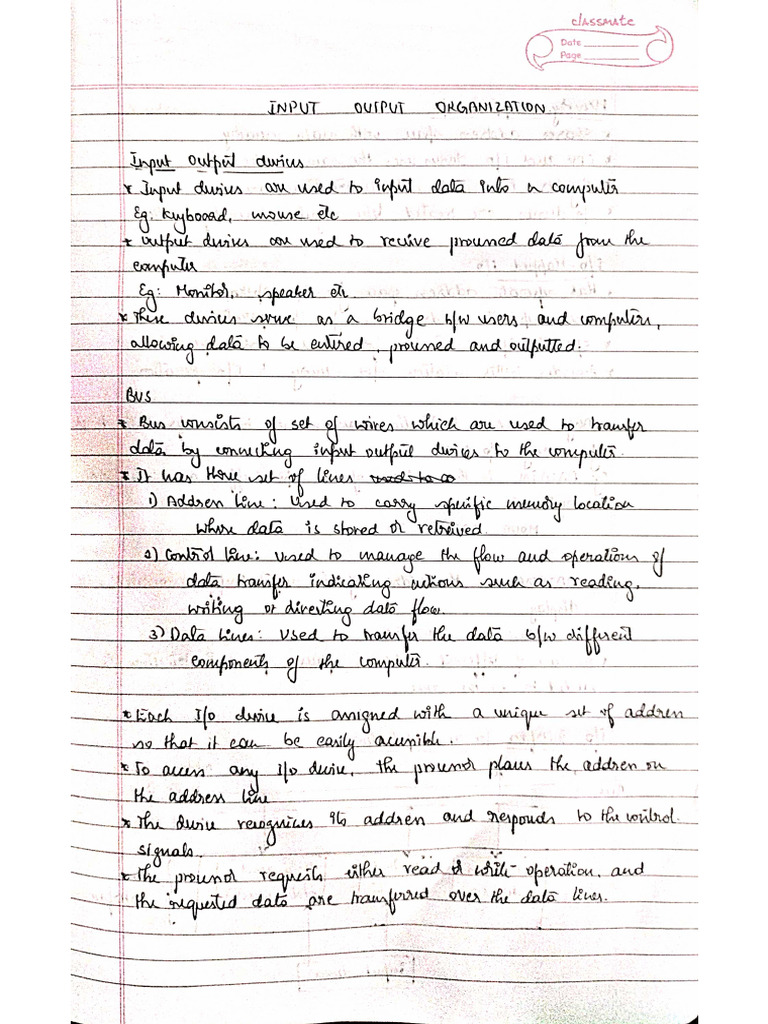 classmate
Date
Page
INPUT OUTPUT ORGANIZATION
Input Output devices
* Input devices are used to input data into a computer
Eg: Keyboard, mouse etc
* Output devices are used to receive processed data from the
computer
Eg: Monitor, speaker etc
* These devices serve as a bridge b/w users and computers,
allowing data to be entered, processed and outputted.
BUS
* Bus consists of set of wires which are used to transfer
data by connecting input output devices to the computer
* It has three set of lines
1) Address line: Used to carry specific memory location
where data is stored or retreived.
2) Control line: Used to manage the flow and operations of
data transfer indicating actions such as reading,
writing or diverting data flow.
3) Data Lines: Used to transfer the data b/w different
components of the computer.
* Each I/o device is assigned with a unique set of address
so that it can be easily accessible.
* To access any I/o device, the processor places the address on
the address line
* The device recognizes its address and responds to the control
signals.
* The processor requests either read or write operation, and
the requested data are transferred over the data lines.